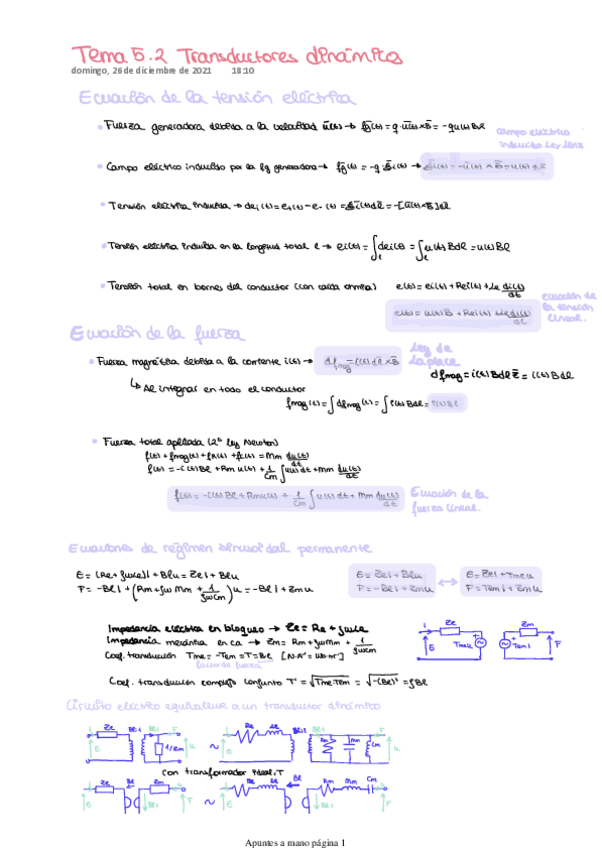 Tema 5.2 Transductores dinámicos
domingo, 26 de diciembre de 2021 18:10
Ecuación de la tensión eléctrica
• Fuerza generadora debida a la velocidad ū(t) → f̄g(t) = q·ū(t)×B̄ = -qu(t)Bē
campo eléctrico
inducido Ley Lenz
• Campo eléctrico inducido por la fg generadora →
• Tensión eléctrica inducida → dei(t) = e+(t) - e-(t) =
• Tensión eléctrica inducida en la longitud total l → ei(t) = ∫l dei(t) = ∫l u(t)Bdl = u(t)Bl
• Tensión total en bornes del conductor (con caída óhmica) e(t) = ei(t) + Rei(t) + Le di(t)/dt
ecuación de
la tensión
lineal.
e(t) = u(t)Bl + Rei(t) + Le di(t)/dt
Ecuación de la fuerza
• Fuerza magnética debida a la corriente i(t) → df̄mag = i(t)dl̄ × B̄
Ley de
Laplace
↳ Al integrar en todo el conductor
fmag(t) = ∫dfmag(t) = ∫i(t)Bdl = i(t)Bl
• Fuerza total aplicada (2ª ley Newton)
f(t) = -i(t)Bl + Rmu(t) + 1/Cm ∫u(t)dt + Mm du(t)/dt
f(t) = -i(t)Bl + Rmu(t) + 1/Cm ∫u(t)dt + Mm du(t)/dt
Ecuación de la
fuerza lineal.
Ecuaciones de régimen sinusoidal permanente
E = (Re+jωLe)I + Blu = ZeI + Blu
F = -BlI + (Rm + jωMm + 1/jωCm)u = -BlI + Zmu
E = ZeI + Blu
F = -BlI + Zmu
↔
E = ZeI + Tmeu
F = TemI + Zmu
Impedancia eléctrica en bloqueo → Ze = Re + jωLe
Impedancia mecánica en ca → Zm = Rm + jωMm + 1/jωCm
Coef. transducción Tme = -Tem = T = Bl
factor de fuerza
Coef. transducción complejo conjunto T' = √(Tme·Tem) = √(-(Bl)²) = jBl
I Ze Zm
E TmeU TemI F
Circuito eléctrico equivalente a un transductor dinámico
Ze Bl:1 F
E 1/Zm u
~
Re Le Bl:1
E Rm Mm Cm u
con transformador ideal:T
Ze Bl Zm
E F
~
Re Le Bl Rm Mm Cm
E F
Apuntes a mano página 1